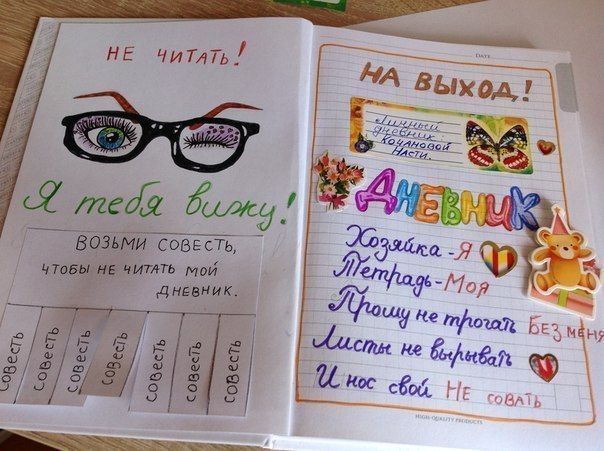 НЕ ЧИТАТЬ!
Я тебя вижу!
ВОЗЬМИ СОВЕСТЬ,
ЧТОБЫ НЕ ЧИТАТЬ МОЙ
ДНЕВНИК.
СОВЕСТЬ
СОВЕСТЬ
СОВЕСТЬ
СОВЕСТЬ
СОВЕСТЬ
СОВЕСТЬ
СОВЕСТЬ
DATE
НА ВЫХОД!
Личный
дневник
КОЧАНОВОЙ
НАСТИ.
ДНЕВНИК
Хозяйка - Я
Тетрадь - Моя
Прошу не трогать БЕЗ МЕНЯ
Листы не вырывать
И нос свой НЕ СОВАТЬ
HIGH-QUALITY PRODUCTS